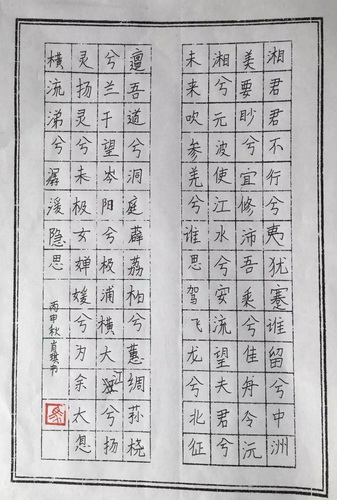 湘君君不行兮夷犹蹇谁留兮中洲
美要眇兮宜修沛吾乘兮佳舟令沅
湘兮元波使江水兮安流望夫君兮
未来吹参差兮谁思驾飞龙兮北征
邅吾道兮洞庭薜荔柏兮蕙绸荪桡
兮兰干望岑阳兮极浦横大江兮扬
灵扬灵兮未极女婵媛兮为余太息
横流涕兮潺湲隐思
丙申秋肖琪书